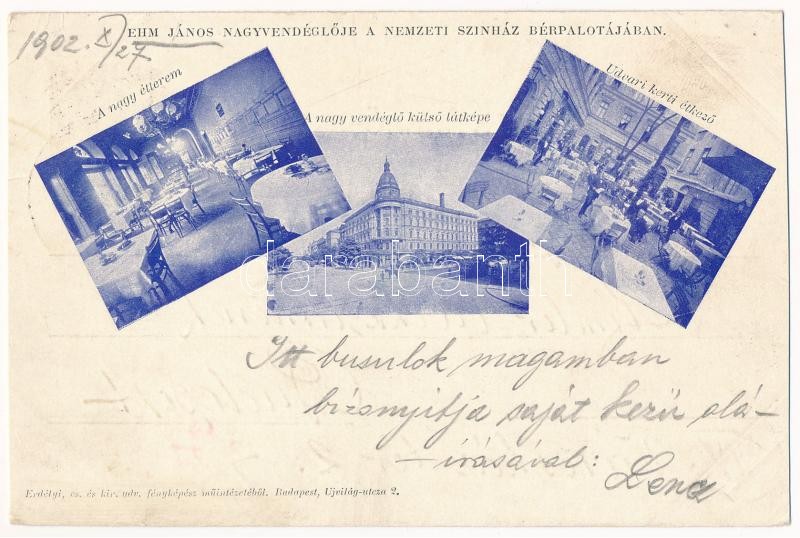 1902. X/27
EHM JÁNOS NAGYVENDÉGLŐJE A NEMZETI SZINHÁZ BÉRPALOTÁJÁBAN.
A nagy étterem
A nagy vendéglő külső látképe
Udvari kerti étkező
darabanth
Itt busulok magamban
bizonyitja saját kezü alá-
-irásával:
Erdélyi, cs. és kir. udv. fényképész műintézetéből. Budapest, Ujvilág-utcza 2.